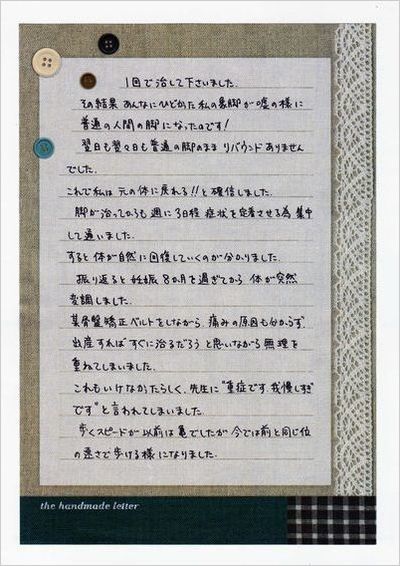 1回で治して下さいました。
その結果 あんなにひどかった 私の鼻脚が嘘の様に
普通の人間の脚になったのです!
翌日も翌々日も普通の脚のまま リバウンドありません
でした。
これで私は 元の体に戻れる!!と確信しました。
脚が治ってからも 週に3日程 症状を定着させる為 集中
して通いました。
すると 体が自然に回復していくのが分かりました。
振り返ると 妊娠8か月を過ぎてから 体が突然
変調しました。
某骨盤矯正ベルトをしながら 痛みの原因も分からず
出産すればすぐに治るだろうと思いながら 無理を
重ねてしまいました。
これもいけなかったらしく、先生に"重症です、我慢しすぎ
です"と言われてしまいました。
歩くスピードが以前は亀でしたが 今では前と同じ位
の速さで歩ける様になりました。
the handmade letter